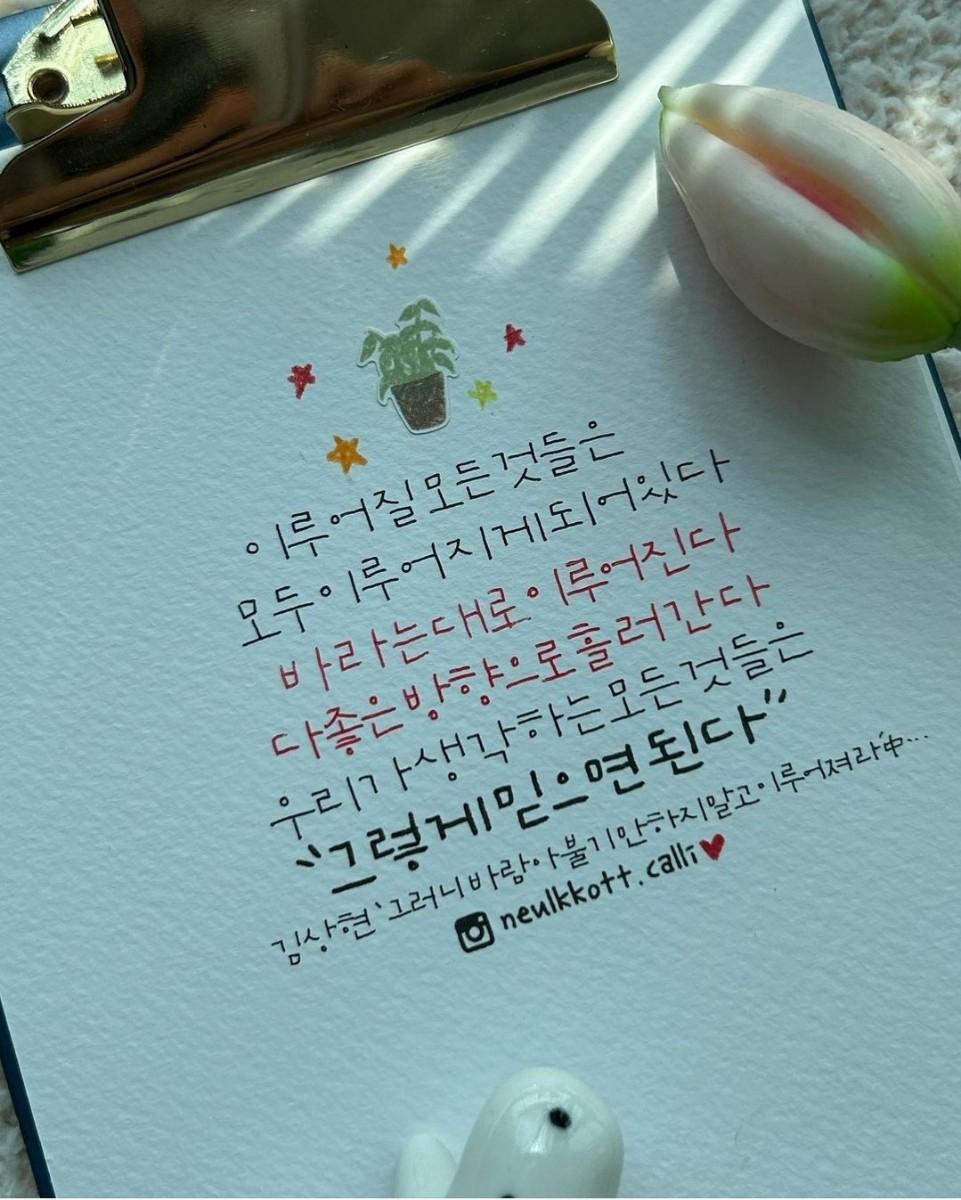 이루어질 모든 것들은
모두 이루어지게 되어있다
바라는대로 이루어진다
다 좋은 방향으로 흘러간다
우리가 생각하는 모든 것들은
"그렇게 믿으면 된다"
김상현 '그러니 바람아 불기만 하지말고 이루어져라' 中...
neulkkott.calli